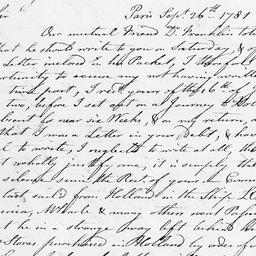 Sir
Paris Sept. 26th 1781
Our mutual Friend Dr. Franklin tol
that he shou'd write to you on Saturday, & of
Letter inclosed in his Packet, I therefore
opportunity to excuse my not having writte
time past, I recd. yours of the 16th of
two, before I set out on a Journey to Hol
absent for near six Weeks, & on my return, a
that I was a Letter in your debt, & ha
to write, I neglected to write at all, th
not wholly justify me, it is simply th
silence since the Rect. of yours. a Comm
last sail'd from Holland in the Ship
America, & many others
he in a strange way left behind
Stores purchased in Holland by order of